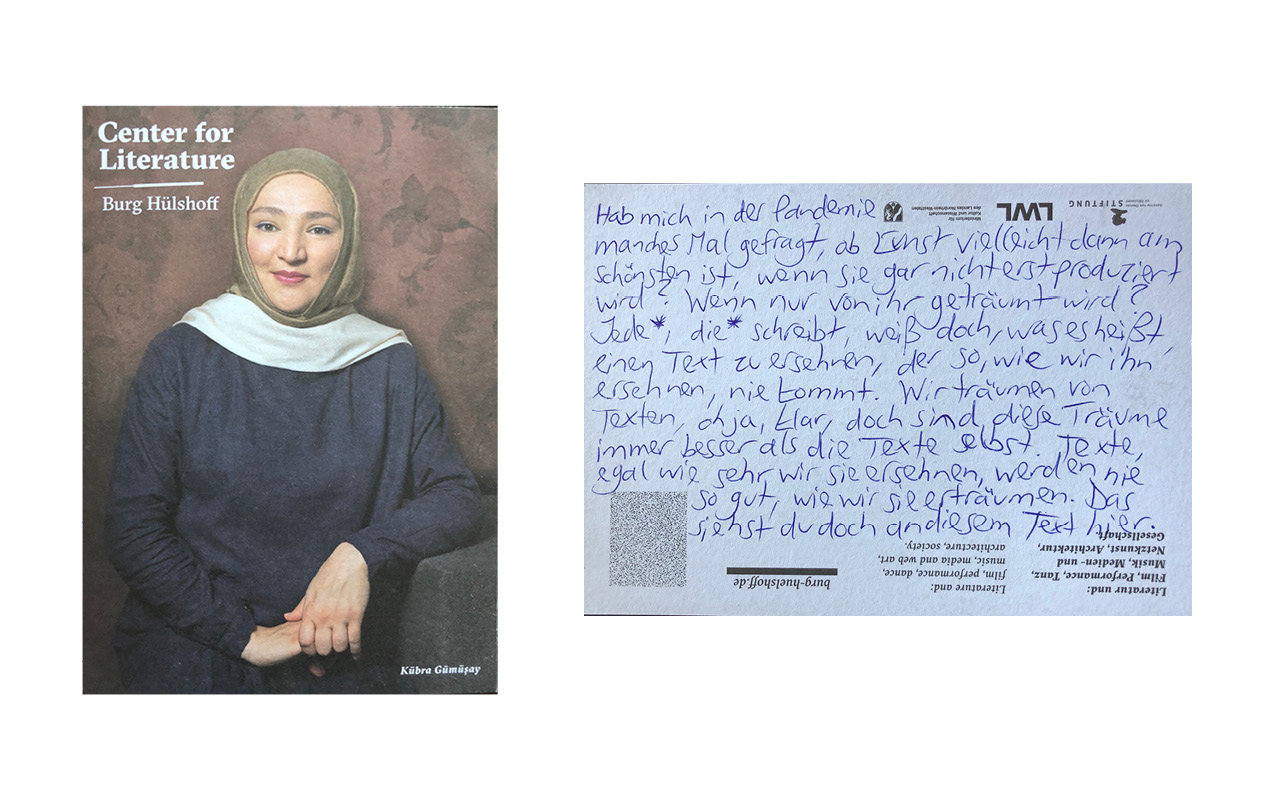 Center for
Literature
Burg Hülshoff
Kübra Gümüşay
Hab mich in der Pandemie
manches Mal gefragt, ob Kunst vielleicht dann am
schönsten ist, wenn sie gar nicht erst produziert
wird? Wenn nur von ihr geträumt wird?
Jede*, die* schreibt, weiß doch, was es heißt,
einen Text zu ersehnen, der so, wie wir ihn
ersehnen, nie kommt. Wir träumen von
Texten, oh ja, klar, doch sind diese Träume
immer besser als die Texte selbst. Texte,
egal wie sehr wir sie ersehnen, werden nie
so gut, wie wir sie erträumen. Das
siehst du doch an diesem Text hier.
Literatur und:
Film, Performance, Tanz,
Musik, Medien- und
Netzkunst, Architektur,
Gesellschaft.
Literature and:
film, performance, dance,
music and media and web art,
architecture, society.
burg-huelshoff.de
STIFTUNG
LWL
Ministerium für
Kultur und Wissenschaft
des Landes Nordrhein-Westfalen